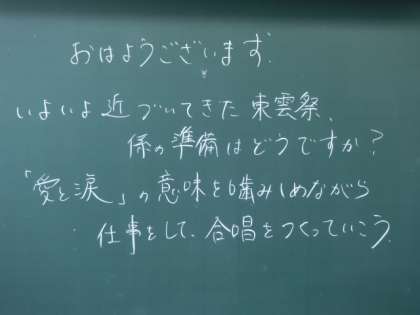 おはようございます.
いよいよ近づいてきた東雲祭、
係の準備はどうですか?
「愛と涙」の意味を噛みしめながら
仕事をして、合唱をつくっていこう.